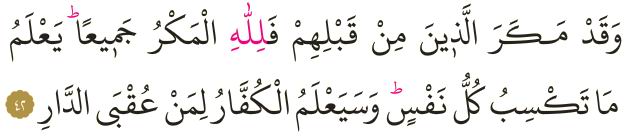 وَقَدْ مَكَرَ الَّذِينَ مِنْ قَبْلِهِمْ فَلِلّٰهِ الْمَكْرُ جَمِيعًا ؕ يَعْلَمُ
مَا تَكْسِبُ كُلُّ نَفْسٍ ؕ وَسَيَعْلَمُ الْكُفَّارُ لِمَنْ عُقْبَى الدَّارِ ٤٢